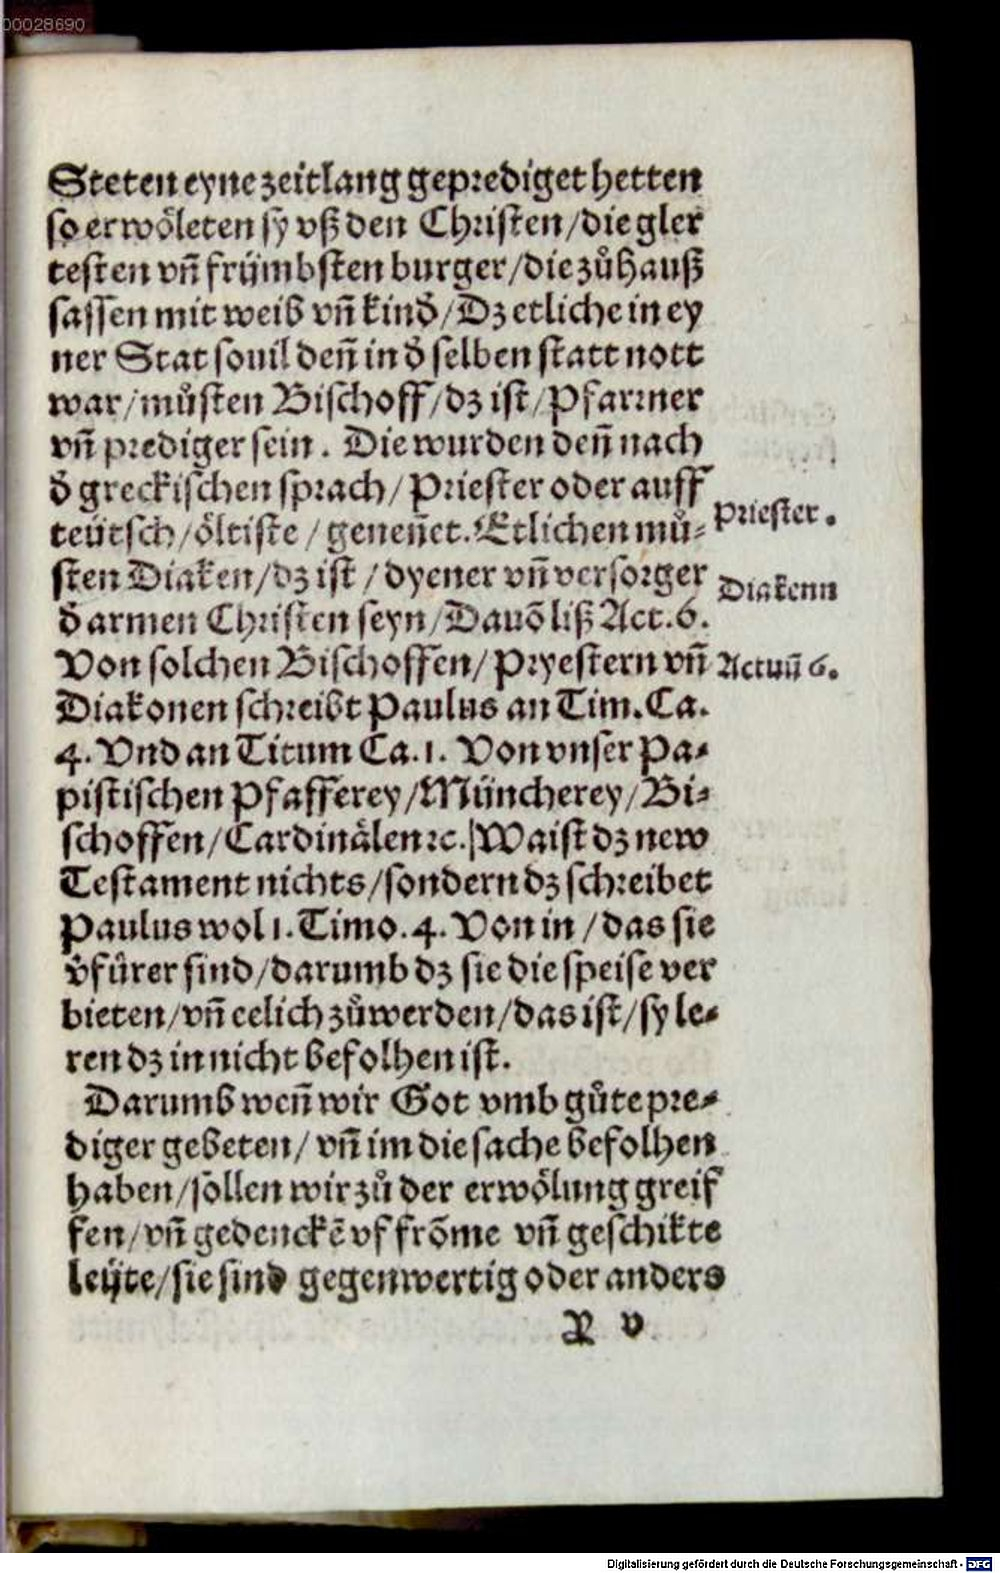 00028690
Steten eyne zeitlang geprediget hetten
so erwöleten sÿ vß den Christen/die gler
testen vñ frÿmbsten burger/die zůhauß
sassen mit weib vñ kind/Dz etliche in ey
ner Stat souil deñ in d̄ selben statt nott
war/můsten Bischoff/dz ist/Pfarrner
vñ prediger sein. Die wurden deñ nach
d̄ greckischen sprach/Priester oder auff
teütsch/öltiste/geneñet. Etlichen mů-
Priester.
sten Diaken/dz ist/dyener vñ versorger
Diakenn
d̄ armen Christen seyn/Dauō liß Act.6.
Von solchen Bischoffen/Pryestern vñ
Actuū 6.
Diakonen schreibt Paulus an Tim.Ca.
4. Vnd an Titum Ca.1. Von vnser Pa-
pistischen Pfafferey/Müncherey/Bi-
schoffen/Cardinälen ꝛc. Waist dz new
Testament nichts/sondern dz schreibet
Paulus wol 1.Timo.4. Von in/das sie
v̄fürer sind/darumb dz sie die speise ver
bieten/vñ eelich zůwerden/das ist/sy le-
ren dz in nicht befolhen ist.
Darumb weñ wir Got vmb gůte pre-
diger gebeten/vñ im die sache befolhen
haben/söllen wir zů der erwölung greif
fen/vñ gedenckē vf frōme vñ geschikte
leÿte/sie sind gegenwertig oder anders
v
Digitalisierung gefördert durch die Deutsche Forschungsgemeinschaft - DFG